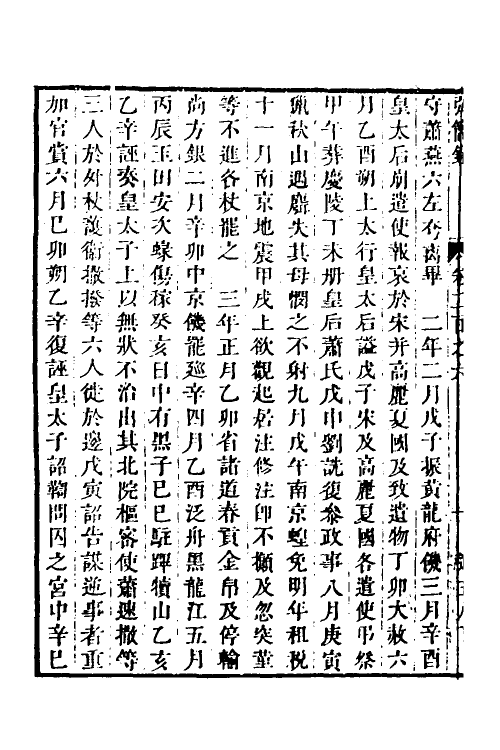 守蕭燕六左夷离畢　二年二月戊子振黃龍府饑三月辛酉
皇太后崩遣使報哀於宋并高麗夏國及致遺物丁卯大赦六
月乙酉朔上大行皇太后諡戊子宋及高麗夏國各遣使弔祭
甲午葬慶陵丁未册皇后蕭氏戊申劉詵復參政事八月庚寅
獵秋山遇麛失其母憫之不射九月戊午南京蝗免明年租稅
十一月南京地震甲戌上欲觀起居注修注郎不攧及忽突堇
等不進各杖罷之　三年正月乙卯省諸道春貢金帛及停輸
尚方銀二月辛卯中京饑罷廵幸四月乙酉泛舟黑龍江五月
丙辰玉田安次蝝傷稼癸亥日中有黑子巳巳駐蹕犢山乙亥
乙辛誣奏皇太子上以無狀不治出其北院樞密使蕭速撒等
三人於外杖護衞撒撥等六人徙於邊戊寅詔告謀逆事者重
加官賞六月巳卯朔乙辛復誣皇太子詔鞫問囚之宮中辛巳